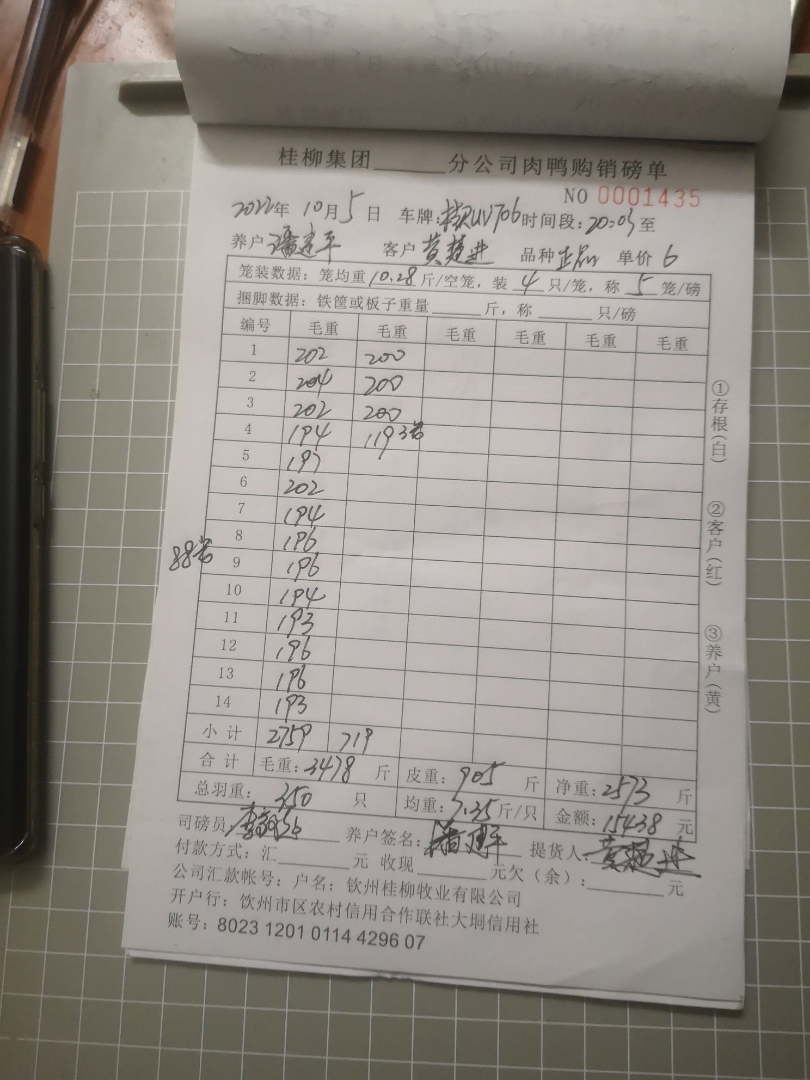 桂柳集团______分公司肉鸭购销磅单
NO 0001435
2022年 10月5日 车牌:桂RUV706 时间段:20:03至
养户 潘建平 客户 黄楚进 品种 正品 单价 6
笼装数据：笼均重10.28斤/空笼，装 4 只/笼，称 5 笼/磅
捆脚数据：铁筐或板子重量______斤，称______只/磅
编号 毛重 毛重 毛重 毛重 毛重 毛重
1 202 200
2 204 200
3 202 200
4 194 119 3笼
5 197
6 202
7 194
8 196
88笼
9 196
10 194
11 193
12 196
13 196
14 193
小计 2759 719
合计 毛重：3478 斤 皮重：905 斤 净重：2573 斤
总羽重：350 只 均重：7.35斤/只 金额：15438 元
司磅员 养户签名：潘建平 提货人：黄楚进
付款方式：汇______元 收现______元欠（余）：______元
公司汇款帐号：户名：钦州桂柳牧业有限公司
开户行：钦州市区农村信用合作联社大垌信用社
账号：8023 1201 0114 4296 07
①存根（白）
②客户（红）
③养户（黄）